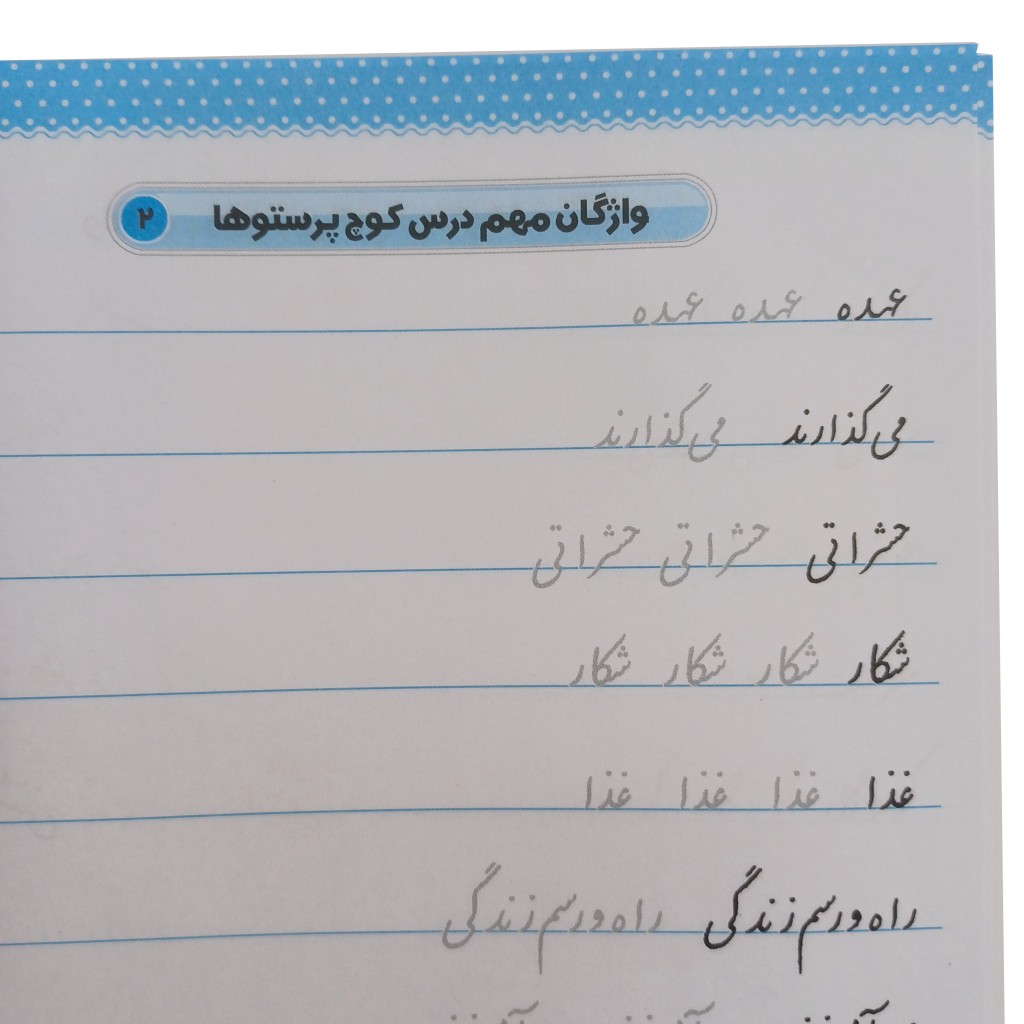 واژگان مهم درس کوچ پرستوها ۲
عهده عهده عهده
می‌گذارند می‌گذارند
حشراتی حشراتی حشراتی
شکار شکار شکار شکار
غذا غذا غذا غذا
راه و رسم زندگی راه و رسم زندگی